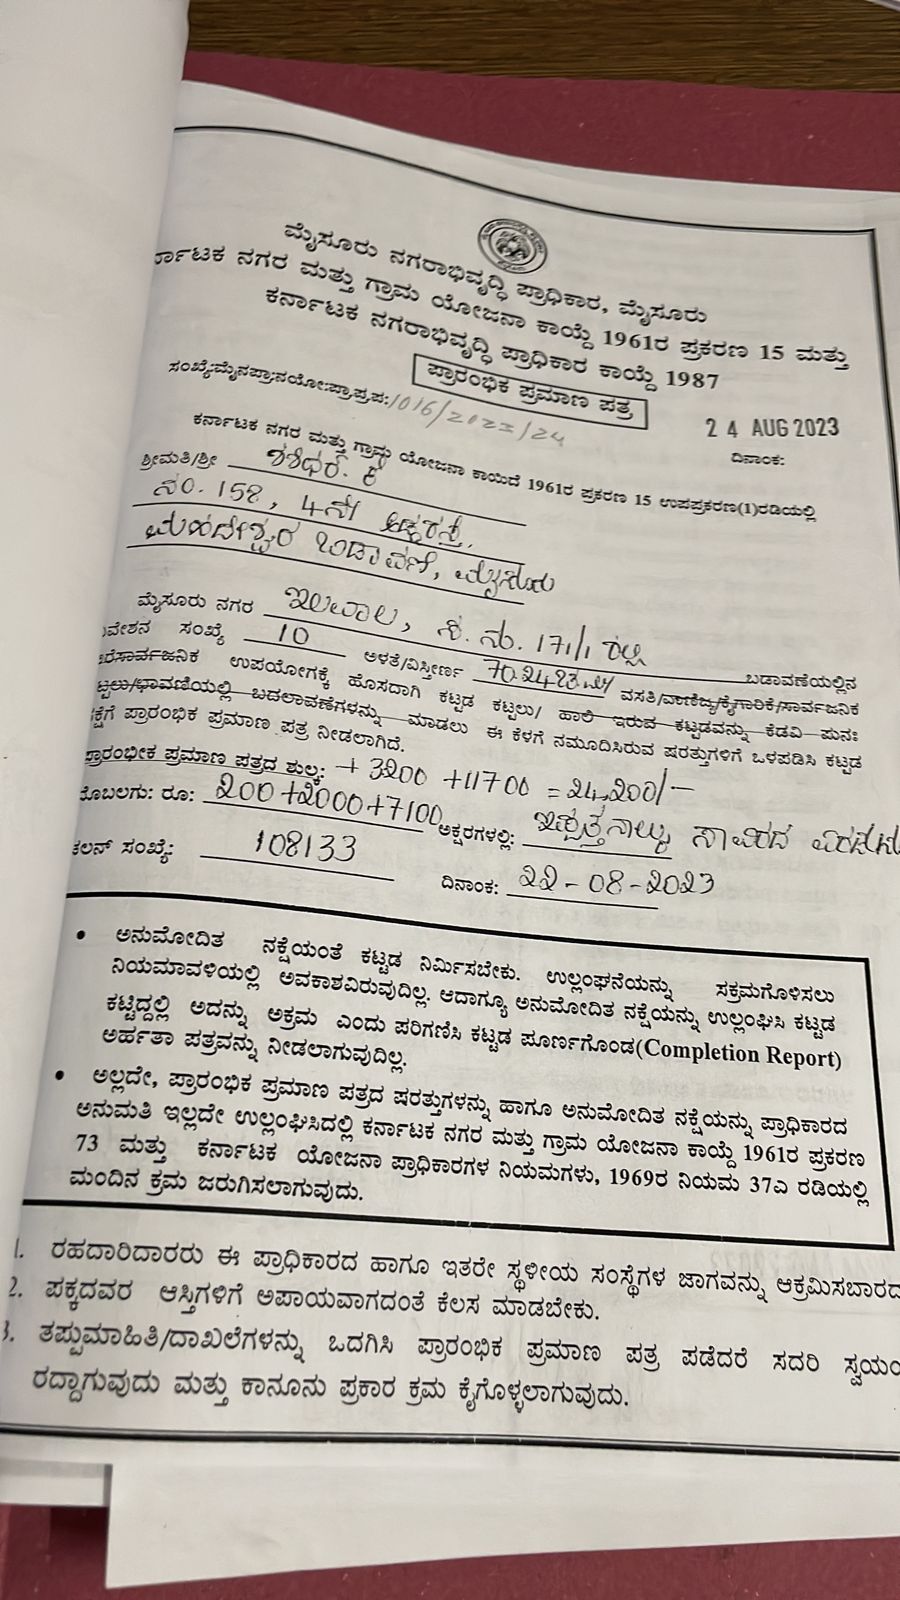 ಮೈಸೂರು ನಗರಾಭಿವೃದ್ಧಿ ಪ್ರಾಧಿಕಾರ, ಮೈಸೂರು
ರ್ನಾಟಕ ನಗರ ಮತ್ತು ಗ್ರಾಮ ಯೋಜನಾ ಕಾಯ್ದೆ 1961ರ ಪ್ರಕರಣ 15 ಮತ್ತು
ಕರ್ನಾಟಕ ನಗರಾಭಿವೃದ್ಧಿ ಪ್ರಾಧಿಕಾರ ಕಾಯ್ದೆ 1987
ಪ್ರಾರಂಭಿಕ ಪ್ರಮಾಣ ಪತ್ರ
ಸಂಖ್ಯೆ:ಮೈನಪ್ರಾ:ನಯೋ:ಪ್ರಾ,ಪ್ರ,ಪ:/016/2023/24
24 AUG 2023
ದಿನಾಂಕ:
ಕರ್ನಾಟಕ ನಗರ ಮತ್ತು ಗ್ರಾಮ ಯೋಜನಾ ಕಾಯಿದೆ 1961ರ ಪ್ರಕರಣ 15 ಉಪಪ್ರಕರಣ(1)ರಡಿಯಲ್ಲಿ
ಶ್ರೀಮತಿ/ಶ್ರೀ ಶಶಿಧರ್.
ನಂ. 158, 4ನೇ ಅಡ್ಡರಸ್ತೆ,
ಮಹದೇಶ್ವರ ಬಡಾವಣೆ, ಮೈಸೂರು
ಮೈಸೂರು ನಗರ ಇಲವಾಲ, ಸ. ನಂ. 171/1 ರಲ್ಲಿ ಬಡಾವಣೆಯಲ್ಲಿನ
ವೇಶನ ಸಂಖ್ಯೆ 10 ಅಳತೆ/ವಿಸ್ತೀರ್ಣ ವಸತಿ/ವಾಣಿಜ್ಯ/ಕೈಗಾರಿಕೆ/ಸಾರ್ವಜನಿಕ
ರೆಸಾರ್ವಜನಿಕ ಉಪಯೋಗಕ್ಕೆ ಹೊಸದಾಗಿ ಕಟ್ಟಡ ಕಟ್ಟಲು/ ಹಾಲಿ ಇರುವ ಕಟ್ಟಡವನ್ನು ಕೆಡವಿ ಪುನಃ
ಟ್ಟಲು/ಛಾವಣಿಯಲ್ಲಿ ಬದಲಾವಣೆಗಳನ್ನು ಮಾಡಲು ಈ ಕೆಳಗೆ ನಮೂದಿಸಿರುವ ಷರತ್ತುಗಳಿಗೆ ಒಳಪಡಿಸಿ ಕಟ್ಟಡ
ಕ್ಷೆಗೆ ಪ್ರಾರಂಭಿಕ ಪ್ರಮಾಣ ಪತ್ರ ನೀಡಲಾಗಿದೆ.
ಪ್ರಾರಂಭೀಕ ಪ್ರಮಾಣ ಪತ್ರದ ಶುಲ್ಕ: + 3200 +11700 = 24,200/-
ಮೊಬಲಗು: ರೂ: 200+2000+7100 ಅಕ್ಷರಗಳಲ್ಲಿ: ಇಪ್ಪತ್ತನಾಲ್ಕು ಸಾವಿರದ
ಚಲನ್ ಸಂಖ್ಯೆ: 108133 ದಿನಾಂಕ: 22-08-2023
• ಅನುಮೋದಿತ ನಕ್ಷೆಯಂತೆ ಕಟ್ಟಡ ನಿರ್ಮಿಸಬೇಕು. ಉಲ್ಲಂಘನೆಯನ್ನು ಸಕ್ರಮಗೊಳಿಸಲು
ನಿಯಮಾವಳಿಯಲ್ಲಿ ಅವಕಾಶವಿರುವುದಿಲ್ಲ. ಆದಾಗ್ಯೂ ಅನುಮೋದಿತ ನಕ್ಷೆಯನ್ನು ಉಲ್ಲಂಘಿಸಿ ಕಟ್ಟಡ
ಕಟ್ಟಿದ್ದಲ್ಲಿ ಅದನ್ನು ಅಕ್ರಮ ಎಂದು ಪರಿಗಣಿಸಿ ಕಟ್ಟಡ ಪೂರ್ಣಗೊಂಡ(Completion Report)
ಅರ್ಹತಾ ಪತ್ರವನ್ನು ನೀಡಲಾಗುವುದಿಲ್ಲ.
• ಅಲ್ಲದೇ, ಪ್ರಾರಂಭಿಕ ಪ್ರಮಾಣ ಪತ್ರದ ಷರತ್ತುಗಳನ್ನು ಹಾಗೂ ಅನುಮೋದಿತ ನಕ್ಷೆಯನ್ನು ಪ್ರಾಧಿಕಾರದ
ಅನುಮತಿ ಇಲ್ಲದೇ ಉಲ್ಲಂಘಿಸಿದಲ್ಲಿ ಕರ್ನಾಟಕ ನಗರ ಮತ್ತು ಗ್ರಾಮ ಯೋಜನಾ ಕಾಯ್ದೆ 1961ರ ಪ್ರಕರಣ
73 ಮತ್ತು ಕರ್ನಾಟಕ ಯೋಜನಾ ಪ್ರಾಧಿಕಾರಗಳ ನಿಯಮಗಳು, 1969ರ ನಿಯಮ 37ಎ ರಡಿಯಲ್ಲಿ
ಮಂದಿನ ಕ್ರಮ ಜರುಗಿಸಲಾಗುವುದು.
1. ರಹದಾರಿದಾರರು ಈ ಪ್ರಾಧಿಕಾರದ ಹಾಗೂ ಇತರೇ ಸ್ಥಳೀಯ ಸಂಸ್ಥೆಗಳ ಜಾಗವನ್ನು ಆಕ್ರಮಿಸಬಾರದ
2. ಪಕ್ಕದವರ ಆಸ್ತಿಗಳಿಗೆ ಅಪಾಯವಾಗದಂತೆ ಕೆಲಸ ಮಾಡಬೇಕು.
3. ತಪ್ಪುಮಾಹಿತಿ/ದಾಖಲೆಗಳನ್ನು ಒದಗಿಸಿ ಪ್ರಾರಂಭಿಕ ಪ್ರಮಾಣ ಪತ್ರ ಪಡೆದರೆ ಸದರಿ ಸ್ವಯಂ
ರದ್ದಾಗುವುದು ಮತ್ತು ಕಾನೂನು ಪ್ರಕಾರ ಕ್ರಮ ಕೈಗೊಳ್ಳಲಾಗುವುದು.